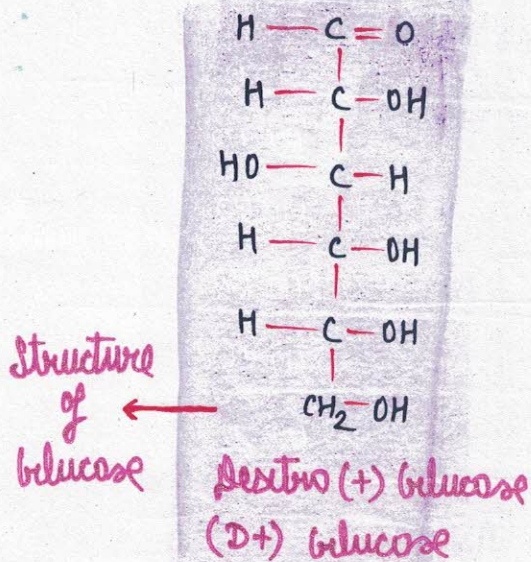 H — C = O
H — C — OH
HO — C — H
H — C — OH
H — C — OH
CH₂ — OH
Structure
of
Glucose
Dextro (+) Glucose
(D+) Glucose